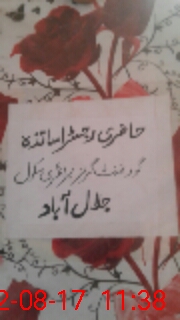 حاضری رجسٹر اساتذہ
گورنمنٹ گرلز پرائمری سکول
جلال آباد
2-08-17 11:38